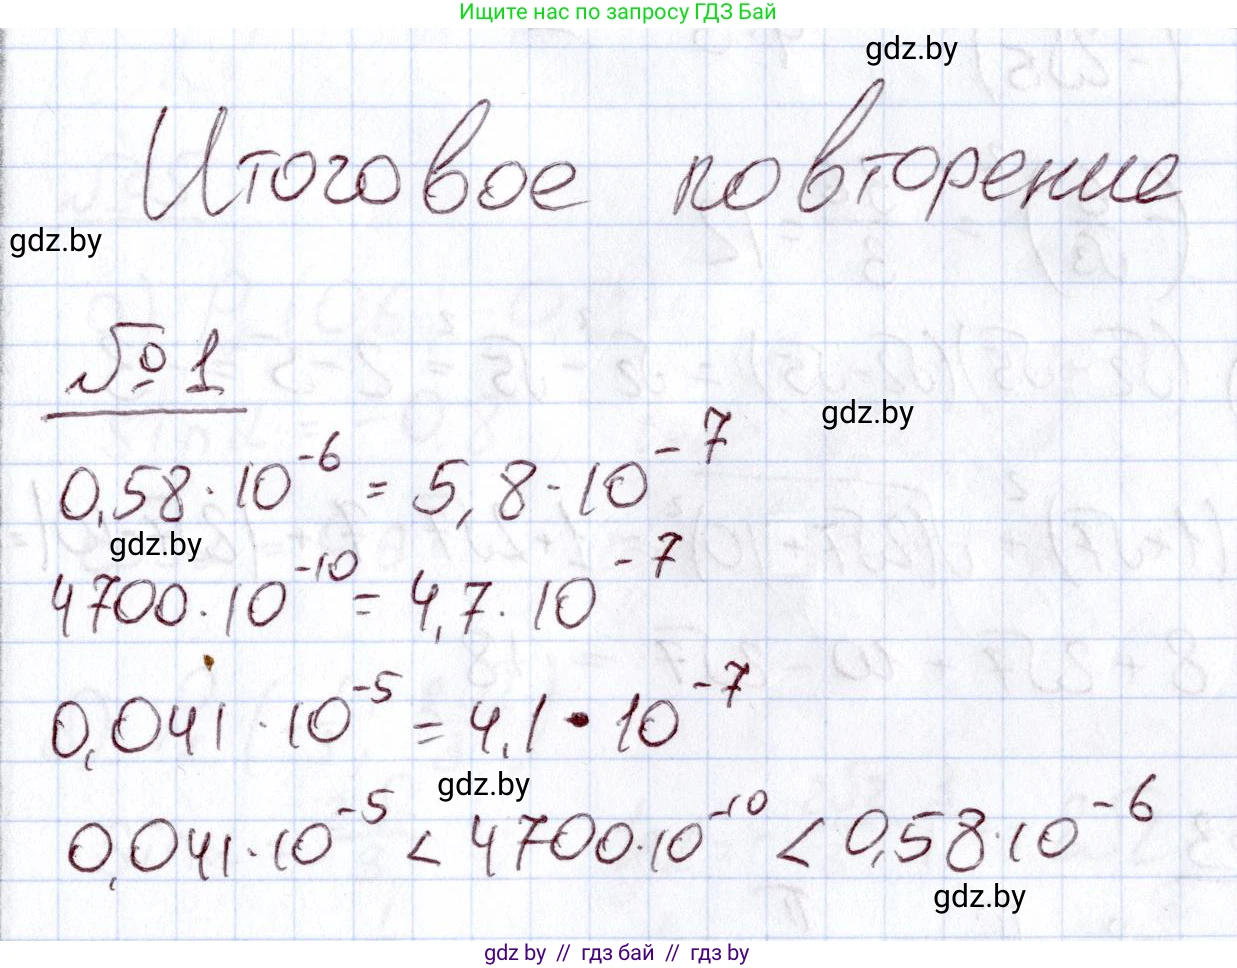 Ищите нас по запросу ГДЗ Бай
gdz.by
Итоговое повторение
gdz.by
№ 1
gdz.by
0,58 · 10⁻⁶ = 5,8 · 10⁻⁷
gdz.by
4700 · 10⁻¹⁰ = 4,7 · 10⁻⁷
0,041 · 10⁻⁵ = 4,1 · 10⁻⁷
gdz.by
0,041 · 10⁻⁵ < 4700 · 10⁻¹⁰ < 0,58 · 10⁻⁶
gdz.by
gdz by // гдз бай // гдз by